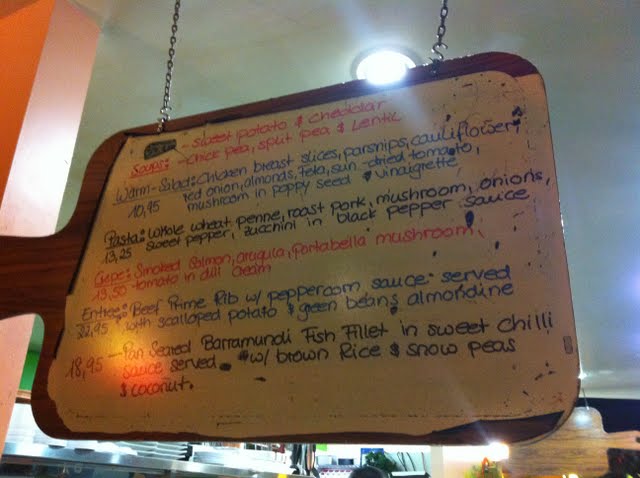 - sweet potato & cheddar
Soups: - chick pea, split pea & Lentil
Warm-Salad: Chicken breast slices, parsnips, cauliflower,
10,95 red onion, almonds, feta, sun-dried tomato,
mushroom in poppy seed vinaigrette
Pasta: Whole wheat penne, roast pork, mushroom, onions,
13,25 sweet pepper, zucchini in black pepper sauce
Crepe: Smoked Salmon, arugula, portabella mushroom,
13,50 tomato in dill cream
Entree: Beef Prime Rib w/ peppercorn sauce served
22,95 with scalloped potato & green beans almondine
18,95 - Pan Seared Barramundi Fish Fillet in sweet chilli
sauce served w/ brown Rice & snow peas
& coconut.